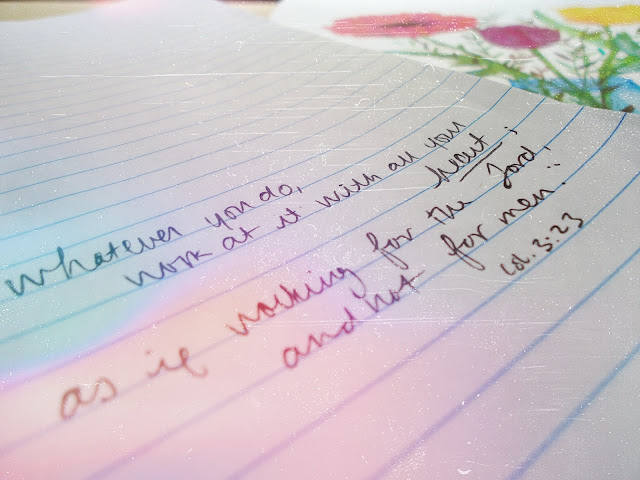 whatever you do,
work at it with all your
heart;
as if working for the Lord,
and not for men!!
col. 3:23